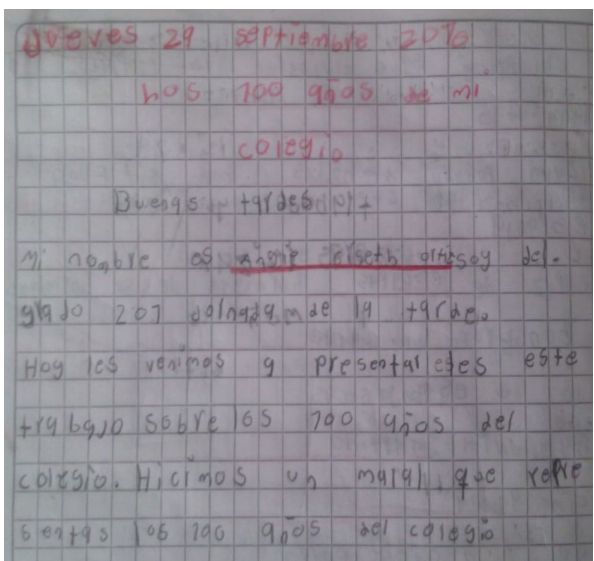 jueves 29 septiembre 2016
los 100 años de mi
colegio
Buenas tardes
mi nombre es soy del
grado 201 de la tarde.
Hoy les venimos a presentarledes este
trabajo sobre los 100 años del
colegio. Hicimos un mural que repre
sentas los 100 años del colegio